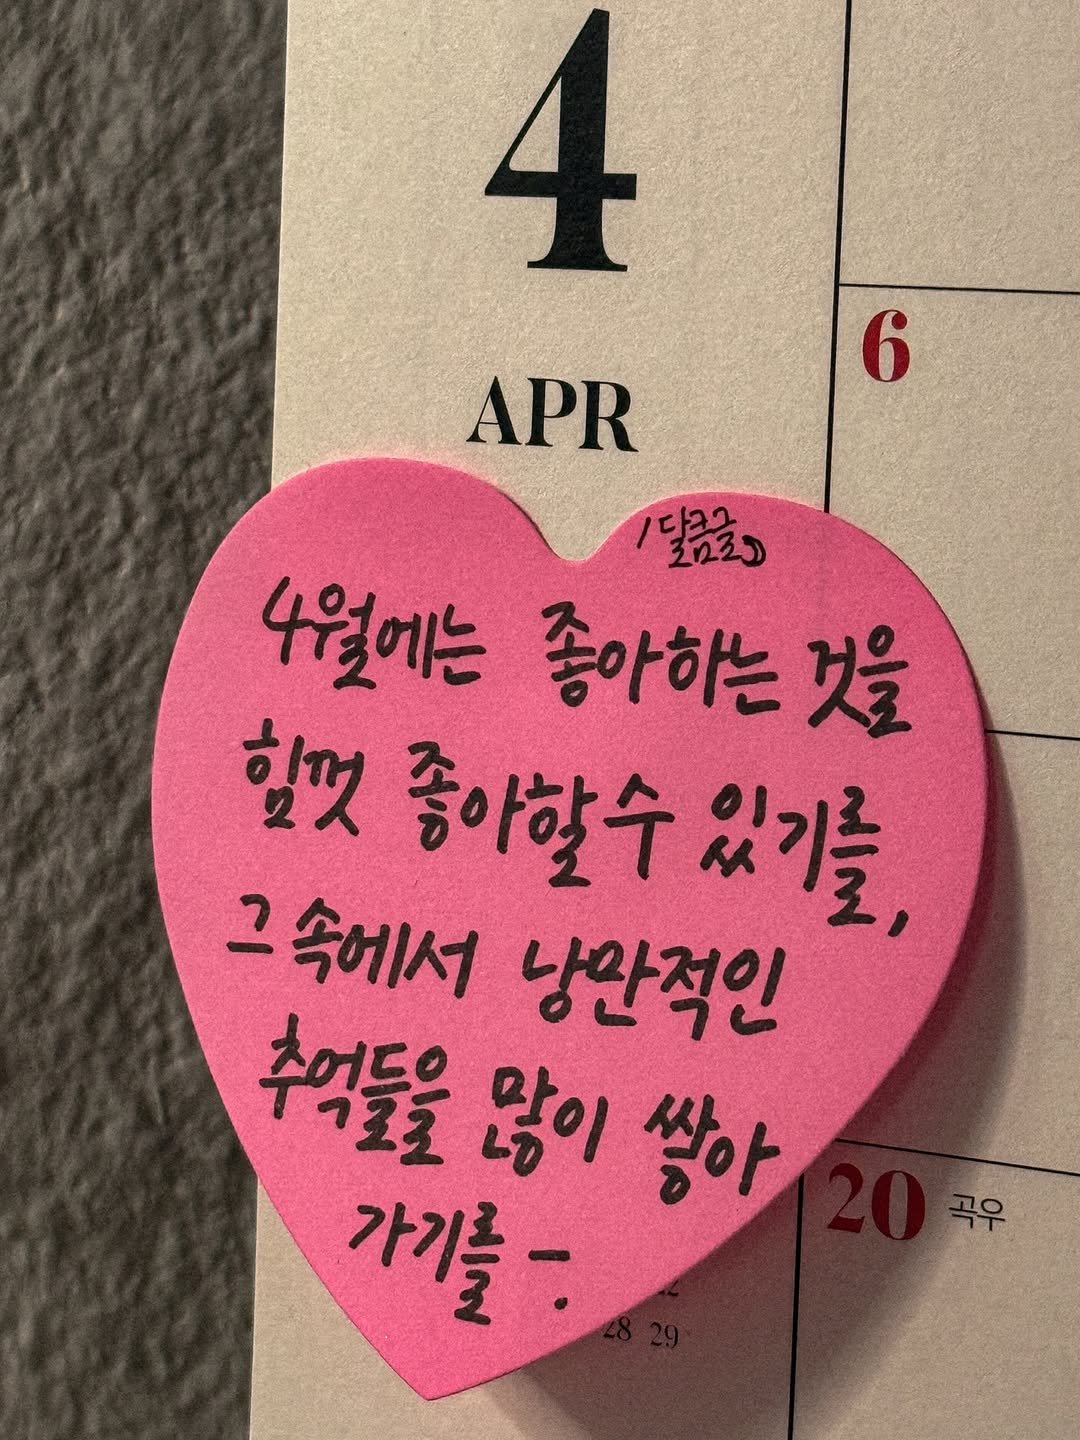 4
APR
6
/달콤글
4월에는 좋아하는 것을
힘껏 좋아할 수 있기를,
그 속에서 낭만적인
추억들을 많이 쌓아
가기를 -.
20 곡우
28 29